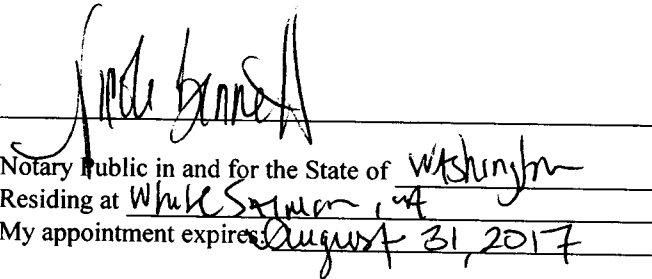 Nicole Bennett
Notary Public in and for the State of Washington
Residing at White Salmon, WA
My appointment expires: August 31, 2017